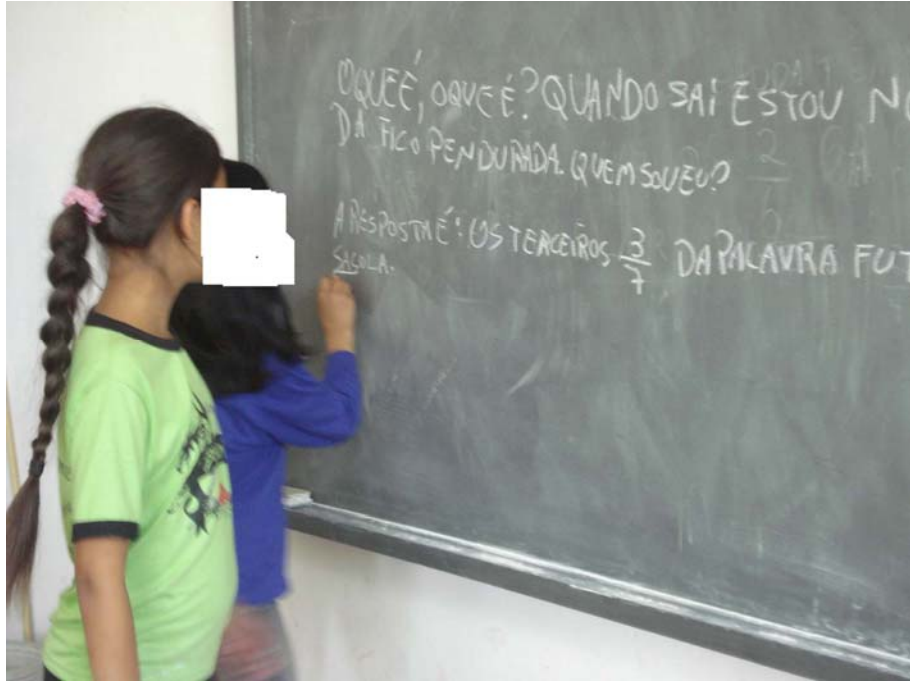 O QUE É, O QUE É? QUANDO SAI ESTOU NO
DA FICO PENDURADA. QUEM SOU EU?
A RESPOSTA É: OS TERCEIROS 3/7 DA PALAVRA FUT
SACOLA.